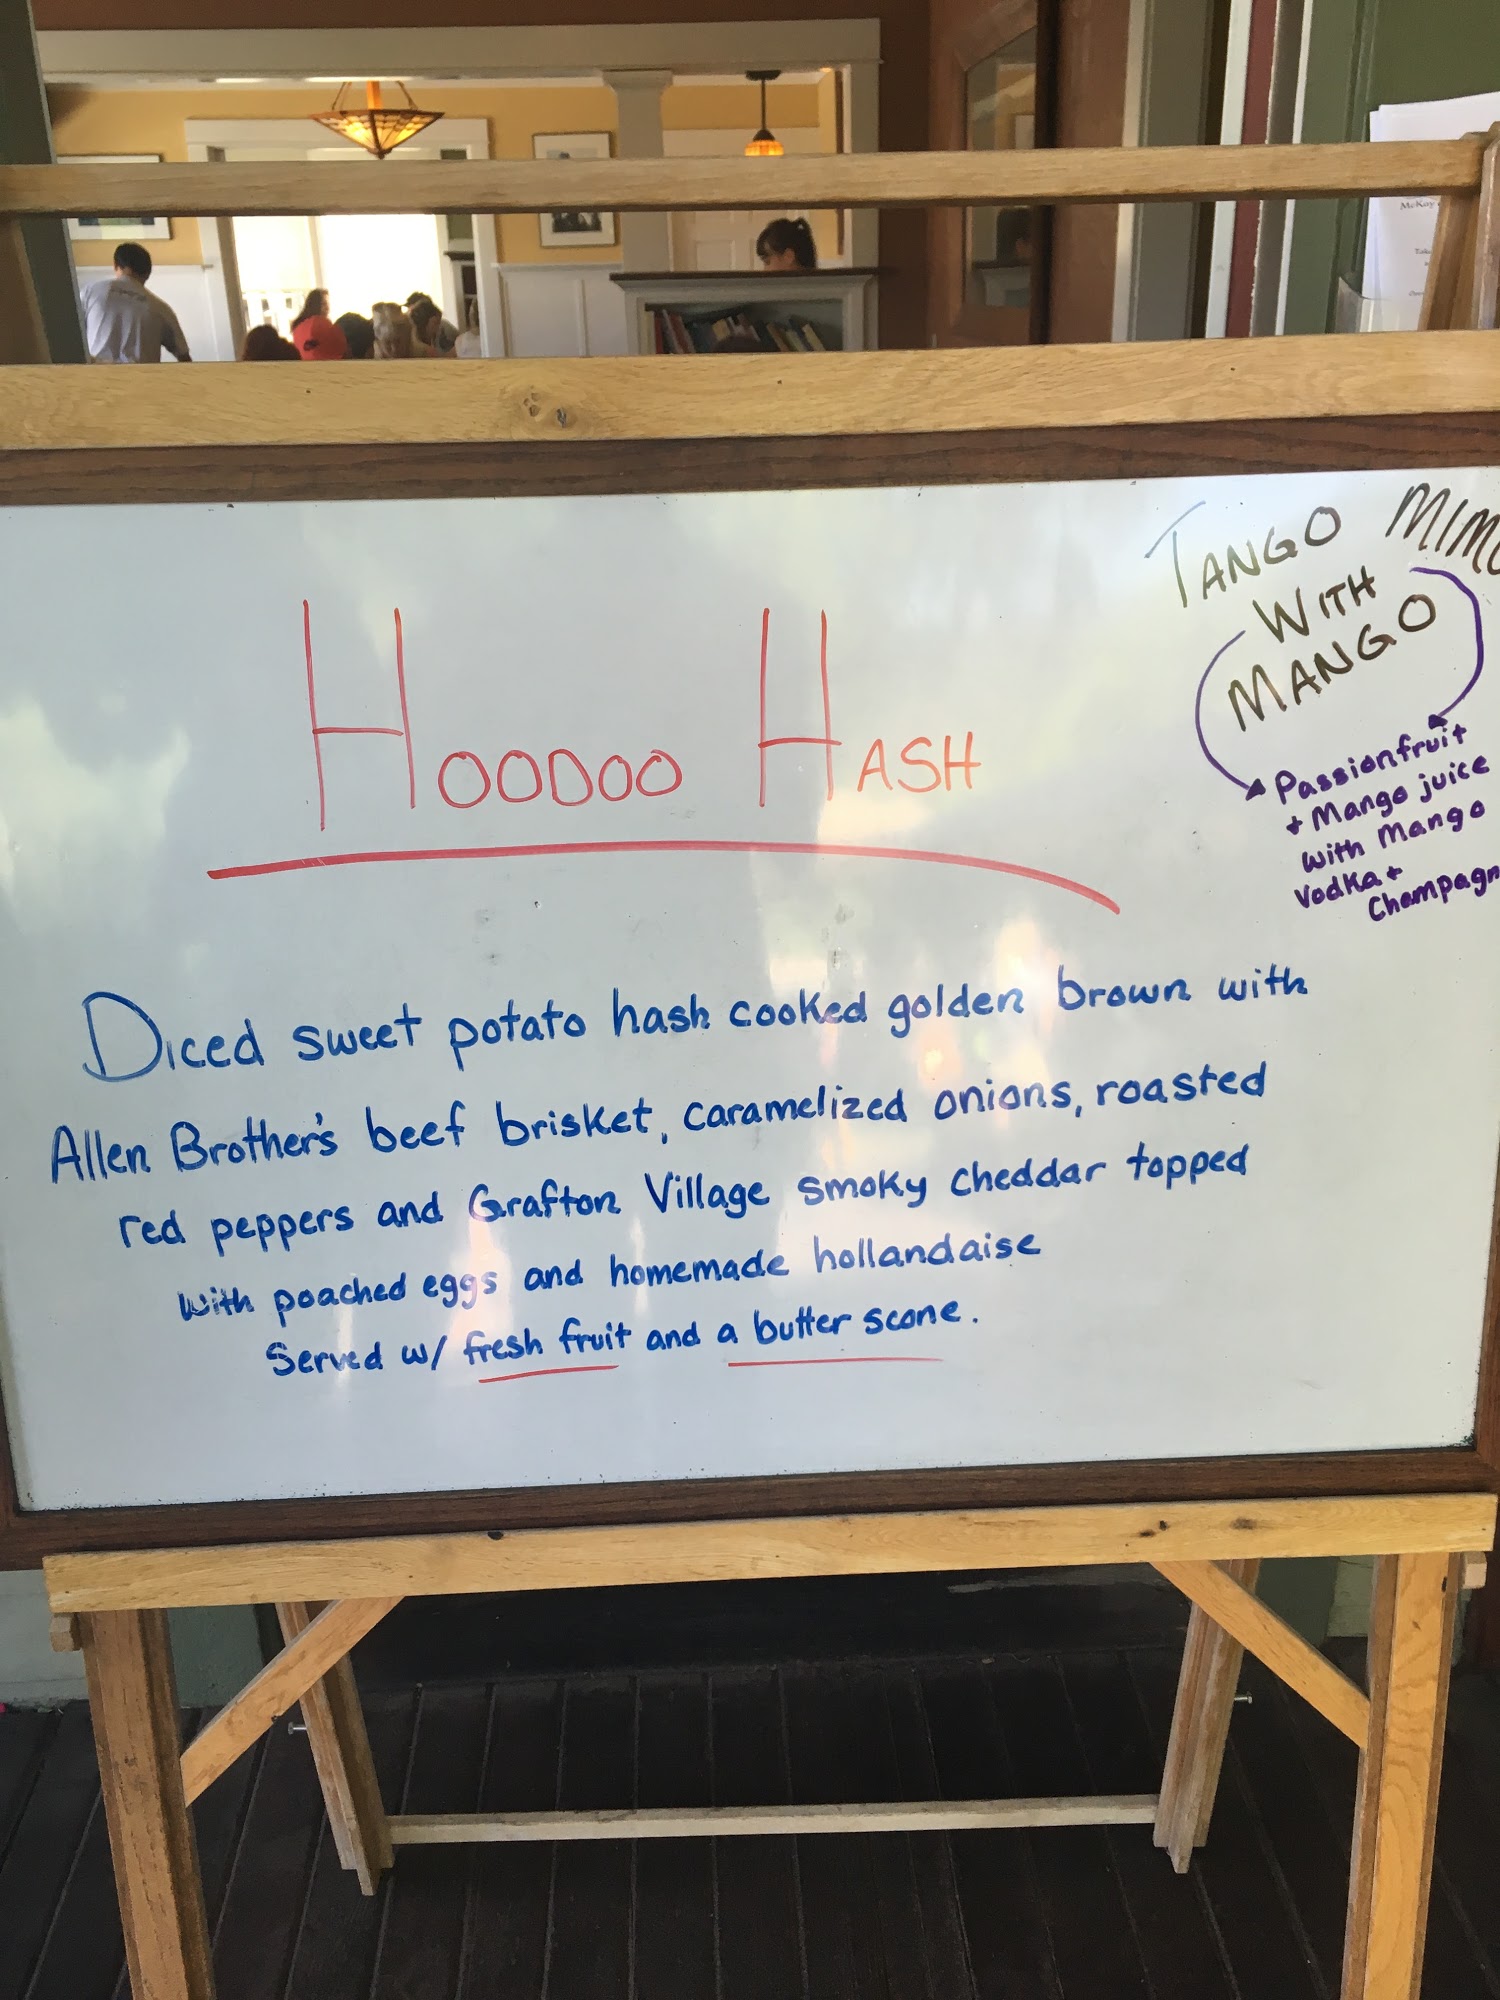 HOODOO HASH
Diced sweet potato hash cooked golden brown with
Allen Brother's beef brisket, caramelized onions, roasted
red peppers and Grafton Village smoky cheddar topped
with poached eggs and homemade hollandaise
Served w/ fresh fruit and a butter scone.
TANGO MIMO
WITH
MANGO
Passionfruit
+ Mango juice
with Mango
Vodka +
Champagn
McKoy